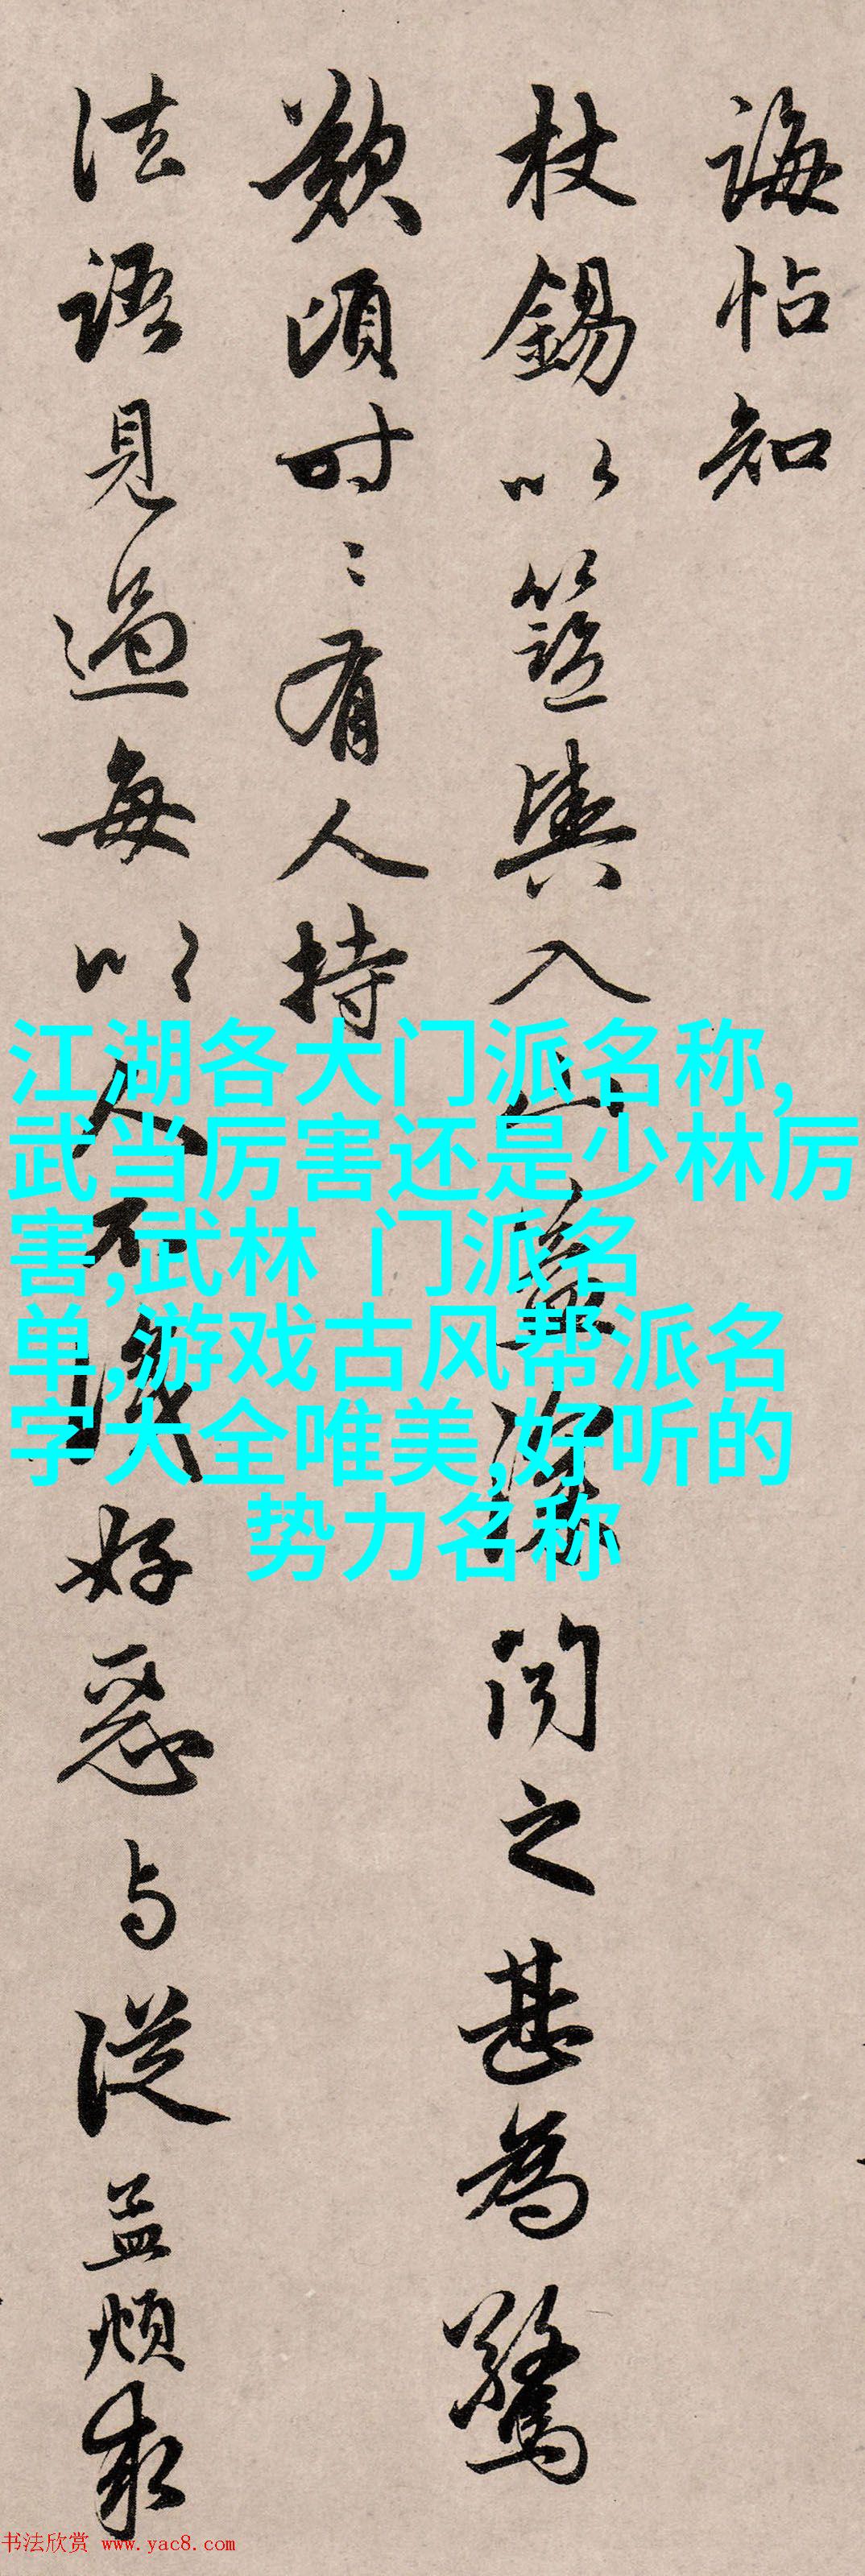 誨帖知
杖錫以輿入山深閒之甚為驚
歎頃時〻有人持
法語見過每以人不識好惡与從益煩求
江湖各大门派名称,
武当厉害还是少林厉
害,武林 门派名
单,游戏古风帮派名
字大全唯美,好听的
势力名称
书法欣赏 www.yac8.com